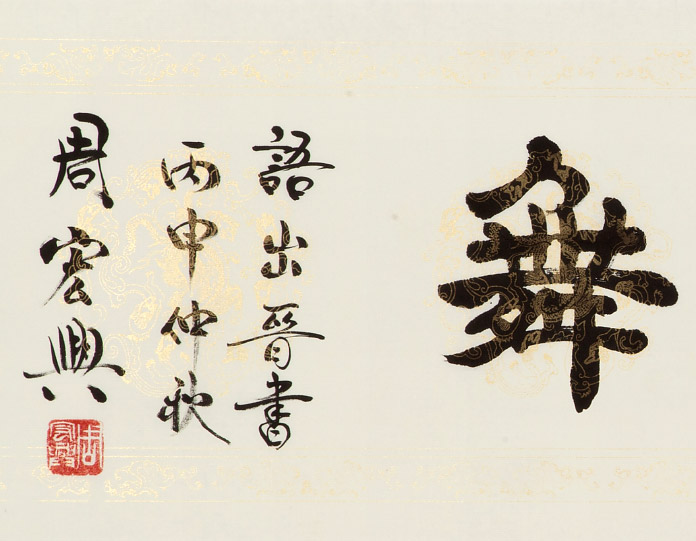 舞
語出晉書
丙申仲秋
周宏興